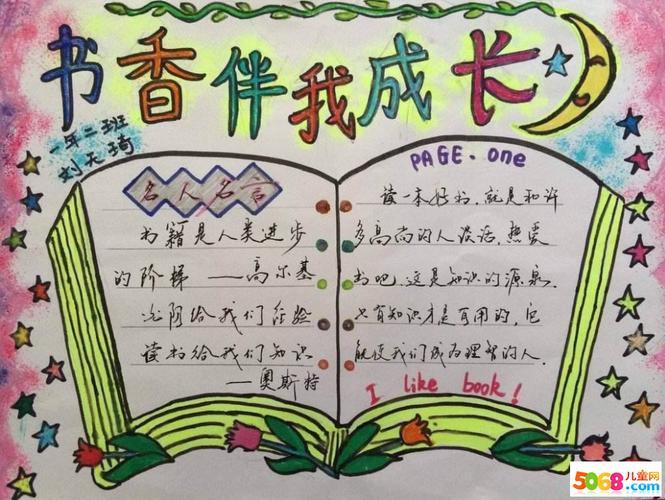 书香伴我成长
一年二班
刘天琦
名人名言
书籍是人类进步
的阶梯——高尔基
沧阿给我们经验
读书给我们知识
——奥斯特
PAGE.one
读一本好书,就是和许
多高尚的人谈话,热爱
书吧,这是知识的源泉.
只有知识才是可用的,它
能使我们成为理智的人.
I like book!
5068儿童网
.com